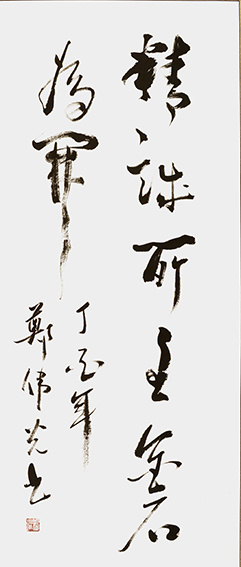 精誠所至金石
為開
丁酉年
鄭偉光书